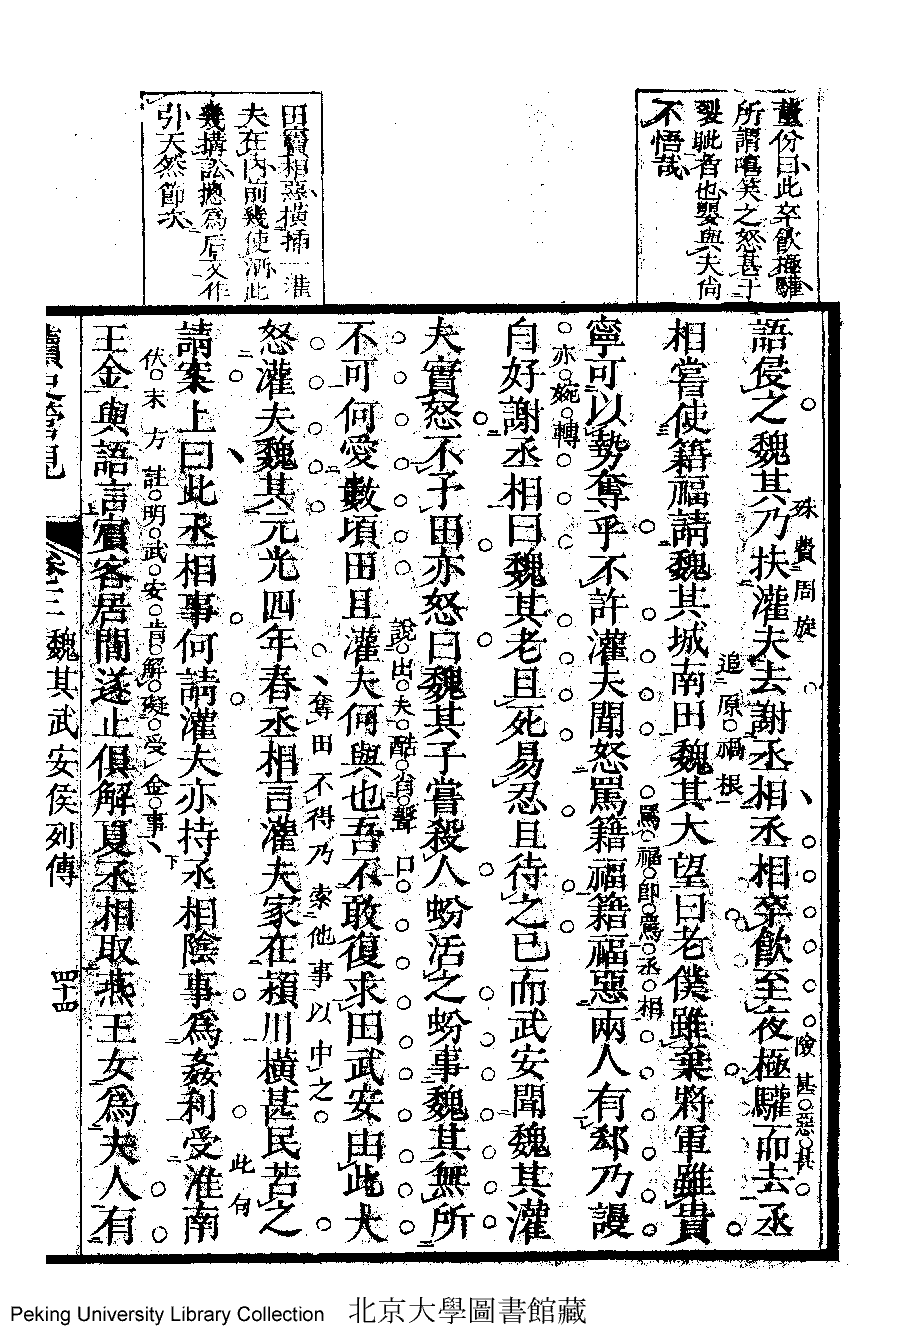 董份曰此卒飲極驩
所謂嘻笑之怒甚于
裂眦者也嬰與夫尚
不悟哉
田竇相惡橫插一灌
夫在內前幾使酒此
幾搆訟總為后文作
引天然節次
語侵之魏其乃扶灌夫去謝丞相丞相卒飲至夜極驩而去丞
殊費周旋
險甚惡甚
相嘗使籍福請魏其城南田魏其大望曰老僕雖棄將軍雖貴
追原禍根
寧可以勢奪乎不許灌夫聞怒罵籍福籍福惡兩人有郄乃謾
罵福即罵丞相
自好謝丞相曰魏其老且死易忍且待之已而武安聞魏其灌
亦婉轉
夫實怒不予田亦怒曰魏其子嘗殺人蚡活之蚡事魏其無所
不可何愛數頃田且灌夫何與也吾不敢復求田武安由此大
說出夫酷肖聲口
怒灌夫魏其元光四年春丞相言灌夫家在潁川橫甚民苦之
奪田不得乃索他事以中之
請案上曰此丞相事何請灌夫亦持丞相陰事為姦利受淮南
此句
王金與語言賓客居間遂止俱解夏丞相取燕王女為夫人有
伏末方註明武安肯解礙受金事下
讀史管見
卷三
魏其武安侯列傳
四十四
Peking University Library Collection 北京大學圖書館藏